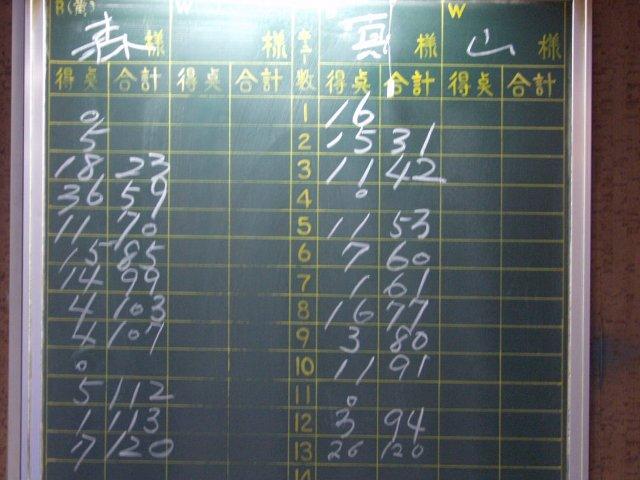 R(黄) W W
森様 様 真様 山様
得点 合計 得点 合計 キュー数 得点 合計 得点 合計
0 1 16
5 2 15 31
18 23 3 11 42
36 59 4 0
11 70 5 11 53
15 85 6 7 60
14 99 7 1 61
4 103 8 16 77
4 107 9 3 80
0 10 11 91
5 112 11 0
1 113 12 3 94
7 120 13 26 120
14